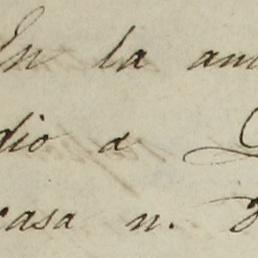 En la
dio a
casa n.